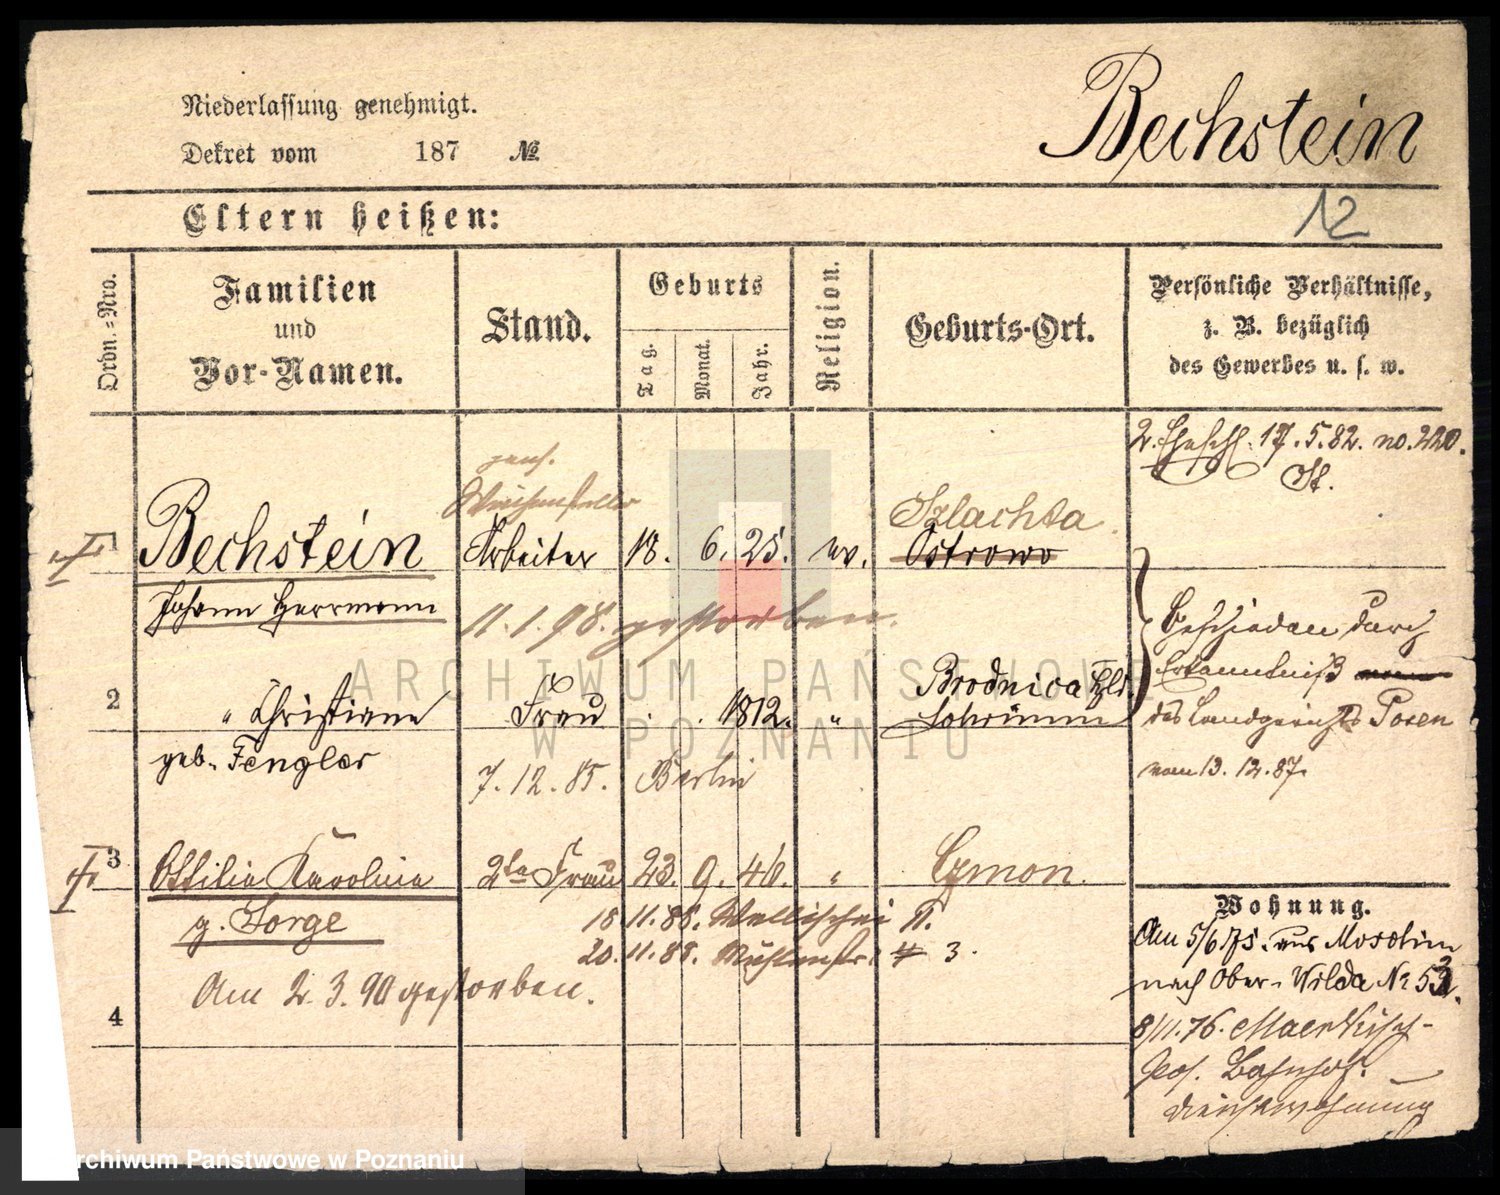 Niederlassung genehmigt.
Dekret vom 187 №
Bechstein
12
Eltern heißen:
Ordn.-Nro.
Familien
und
Vor-Namen.
Stand.
Geburts
Tag.
Monat.
Jahr.
Religion.
Geburts-Ort.
Persönliche Verhältnisse,
z. B. bezüglich
des Gewerbes u. s. w.
2. Eheschl. 17.5.82. no. 220.
St.
pens.
Weichensteller
Szlachta
1 Bechstein Arbeiter 18. 6. 25. ev. Ostrowo
Johann Herrmann
11.1.98. gestorben.
Geschieden durch
Erkenntniß
des Landgerichts Posen
vom 13.12.87.
Brodnica
2 " Christiane Frau . . 1812. " Schrimm
geb. Fengler
7.12.85. Berlin
3 Ottilie Karoline 2te Frau 23. 9. 46. " Czmon.
g. Sorge
18 11.88. Wallischei 11.
20.11.88. Mühlenstr. 4 3.
Am 2.3.90 gestorben.
4
Wohnung.
Am 5/6 75. aus Moschin
nach Ober-Wilda No 53.
8/11.76. Maerkisch-
Pos. Bahnhof.
Dienstwohnung
ARCHIWUM PAŃSTWOWE
W POZNANIU
Archiwum Państwowe w Poznaniu